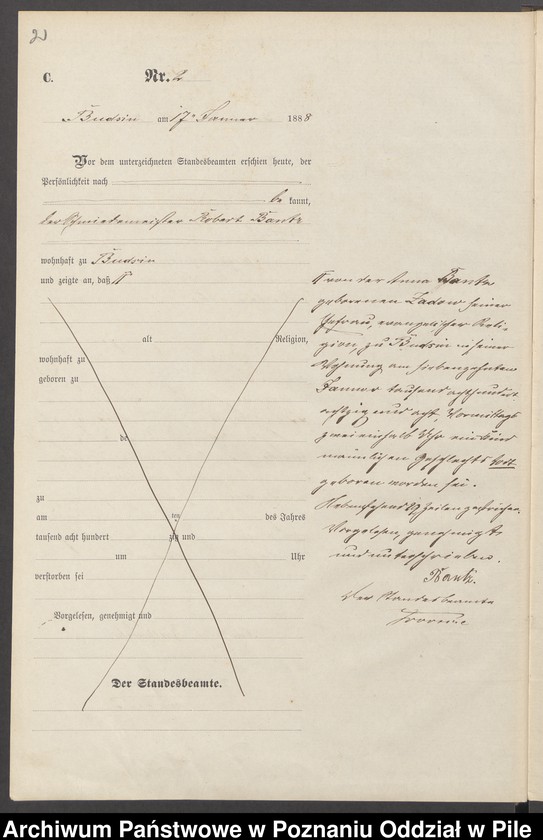 2
C. Nr. 2
Budsin am 17. Januar 1888
Vor dem unterzeichneten Standesbeamten erschien heute, der
Persönlichkeit nach
be kannt,
der Schmiedemeister Robert Bantz
wohnhaft zu Budsin
und zeigte an, daß
alt Religion,
wohnhaft zu
geboren zu
de
zu
am ten des Jahres
tausend acht hundert zig und
um Uhr
verstorben sei
Vorgelesen, genehmigt und
Der Standesbeamte.
von der Anna Bantz
geborenen Zadow seiner
Ehefrau, evangelischer Reli-
gion, zu Budsin in seiner
Wohnung am siebenzehnten
Januar tausend achthundert
achtzig und acht, Vormittags
zwei einhalb Uhr ein Kind
männlichen Geschlechts todt
geboren worden sei.
Nebenstehend 17 Zeilen gestrichen.
Vorgelesen, genehmigt
und unterschrieben.
Bantz.
Der Standesbeamte
Archiwum Państwowe w Poznaniu Oddział w Pile